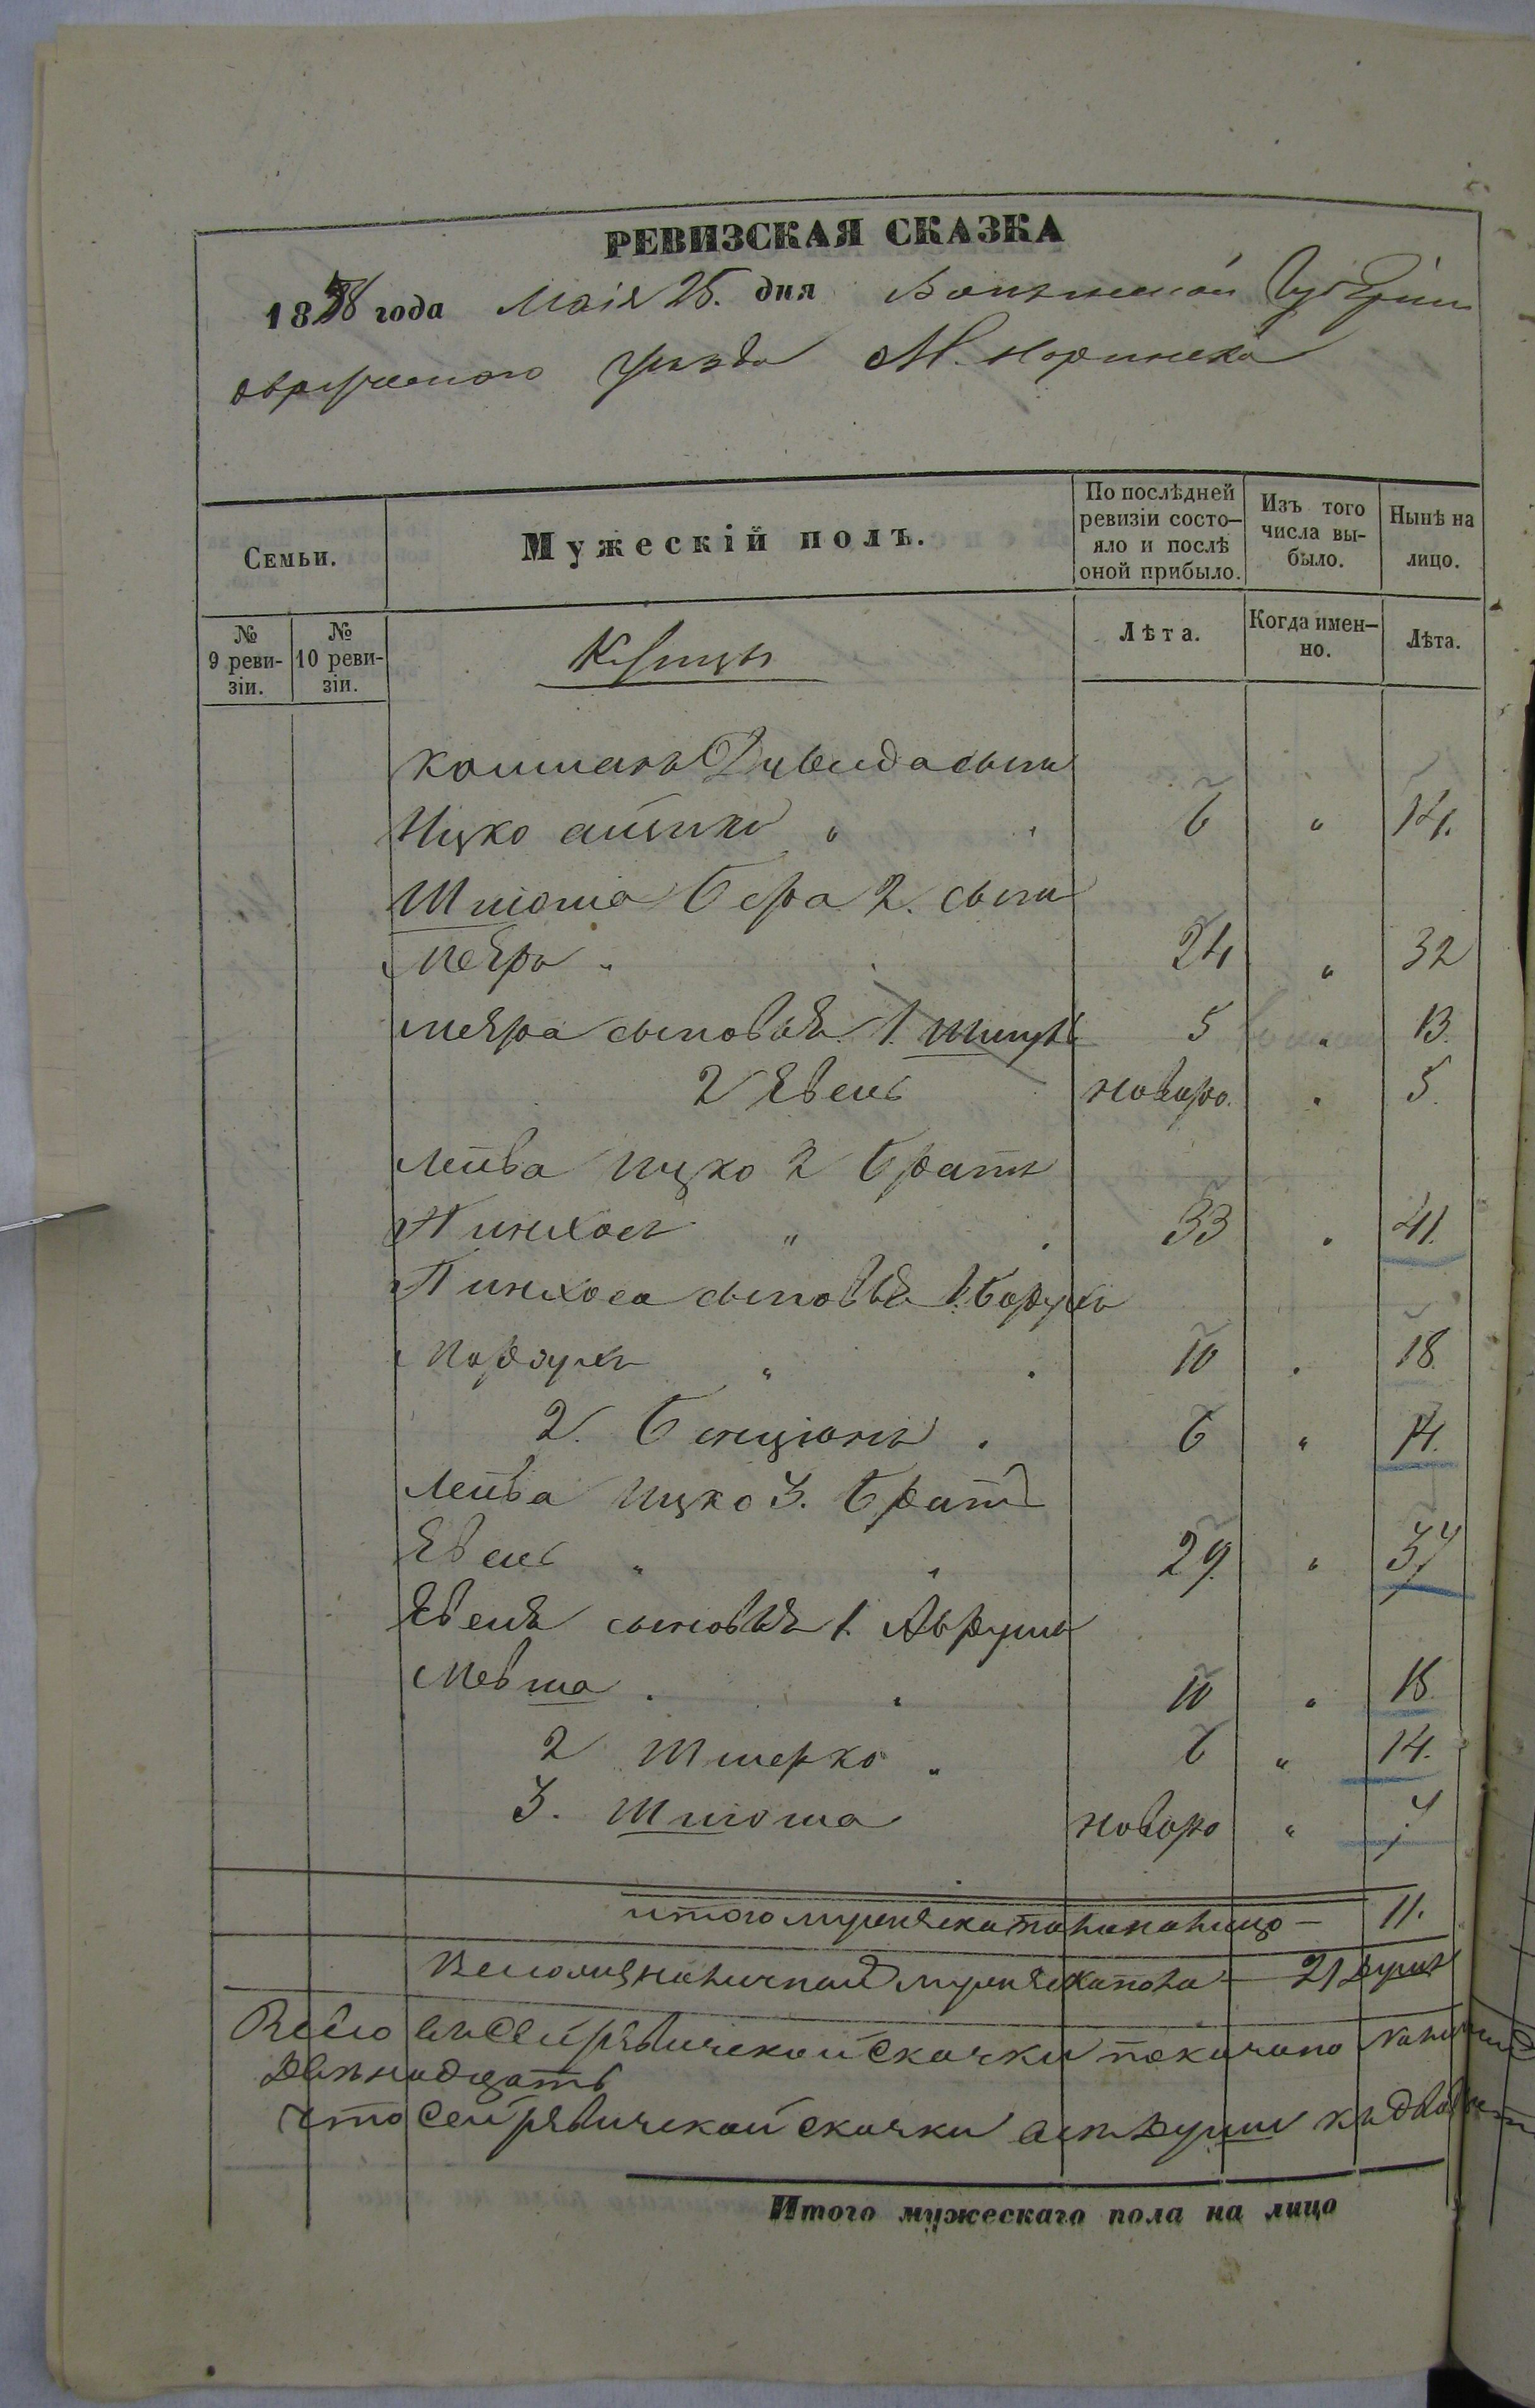 РЕВИЗСКАЯ СКАЗКА
1858 года Маія 25. дня Волынской Губерніи
овручского уезда М. Норинска
Семьи.
Мужескій полъ.
По послѣдней ревизіи состо-яло и послѣ оной прибыло.
Изъ того числа вы-было.
Нынѣ на лицо.
№ 9 реви-зіи.
№ 10 реви-зіи.
Купцы
Лѣта.
Когда имен-но.
Лѣта.
Давида сынъ
Ицко " 6 " 14.
Шмюша Бера 2. сынъ
Меэръ " 24 " 32
Меэра сыновья 1. 5 " 13.
2 Эвель новоро. " 5.
Лейба Ицко 2 братъ
Пинхосъ " 33 " 41.
Пинхоса сыновья 1. Борухъ
Мордухъ " 10 " 18.
2. Бенціонъ " 6 " 14.
Лейба Ицко 3. братъ
Эвель " 29. " 37
Эвеля сыновья 1. Аврумъ
Мевша " 10 " 18.
2 Шмерко " 6 " 14.
3. Шмюша новоро " 7
итого мужеска пола налицо — 11.
наличной мужеска пола — 21 душъ
Всего въ сей ревизской скаски показано
двенадцать
что сей ревизской скаски все души
Итого мужескаго пола на лицо